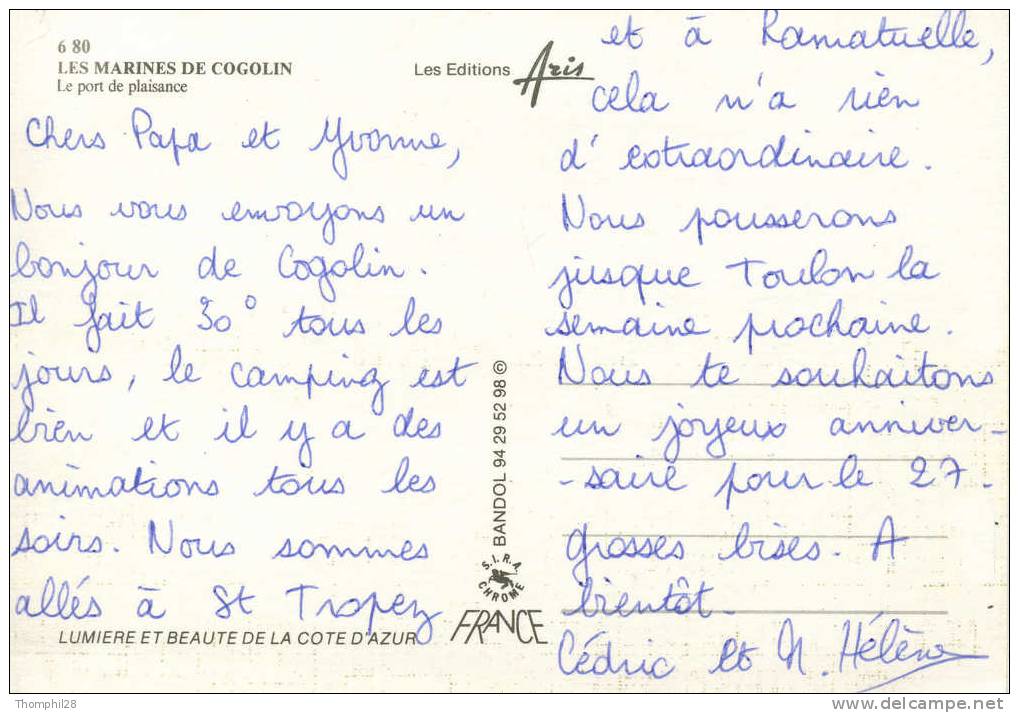 6 80
LES MARINES DE COGOLIN
Le port de plaisance
Les Editions Aris
Chers Papa et Yvonne,
Nous vous envoyons un
bonjour de Cogolin.
Il fait 30° tous les
jours, le camping est
bien et il y a des
animations tous les
soirs. Nous sommes
allés à St Tropez
LUMIERE ET BEAUTE DE LA COTE D'AZUR
BANDOL 94 29 52 98 ©
S.I.R.A.
CHROME
FRANCE
et à Ramatuelle,
cela n'a rien
d'extraordinaire.
Nous pousserons
jusque Toulon la
semaine prochaine.
Nous te souhaitons
un joyeux anniver-
-saire pour le 27.
grosses bises. A
bientôt.
Cédric et M. Hélène
Thomphil28
www.delcampe.net